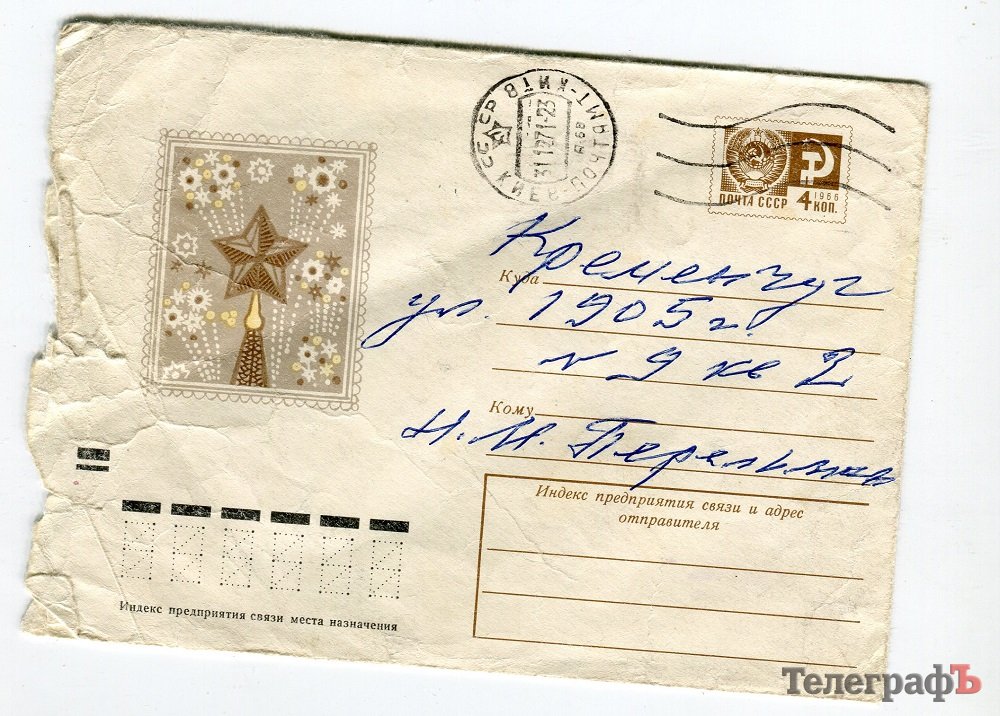 СССР
КИЕВ ПОЧТАМТ-КИЇВ
31.12.71-23
ПОЧТА СССР
1966
4 КОП.
Куда
Кременчуг
ул. 1905 г.
№ 9 кв 2
Кому
Н. М.
Индекс предприятия связи и адрес
отправителя
Индекс предприятия связи места назначения
ТелеграфЪ